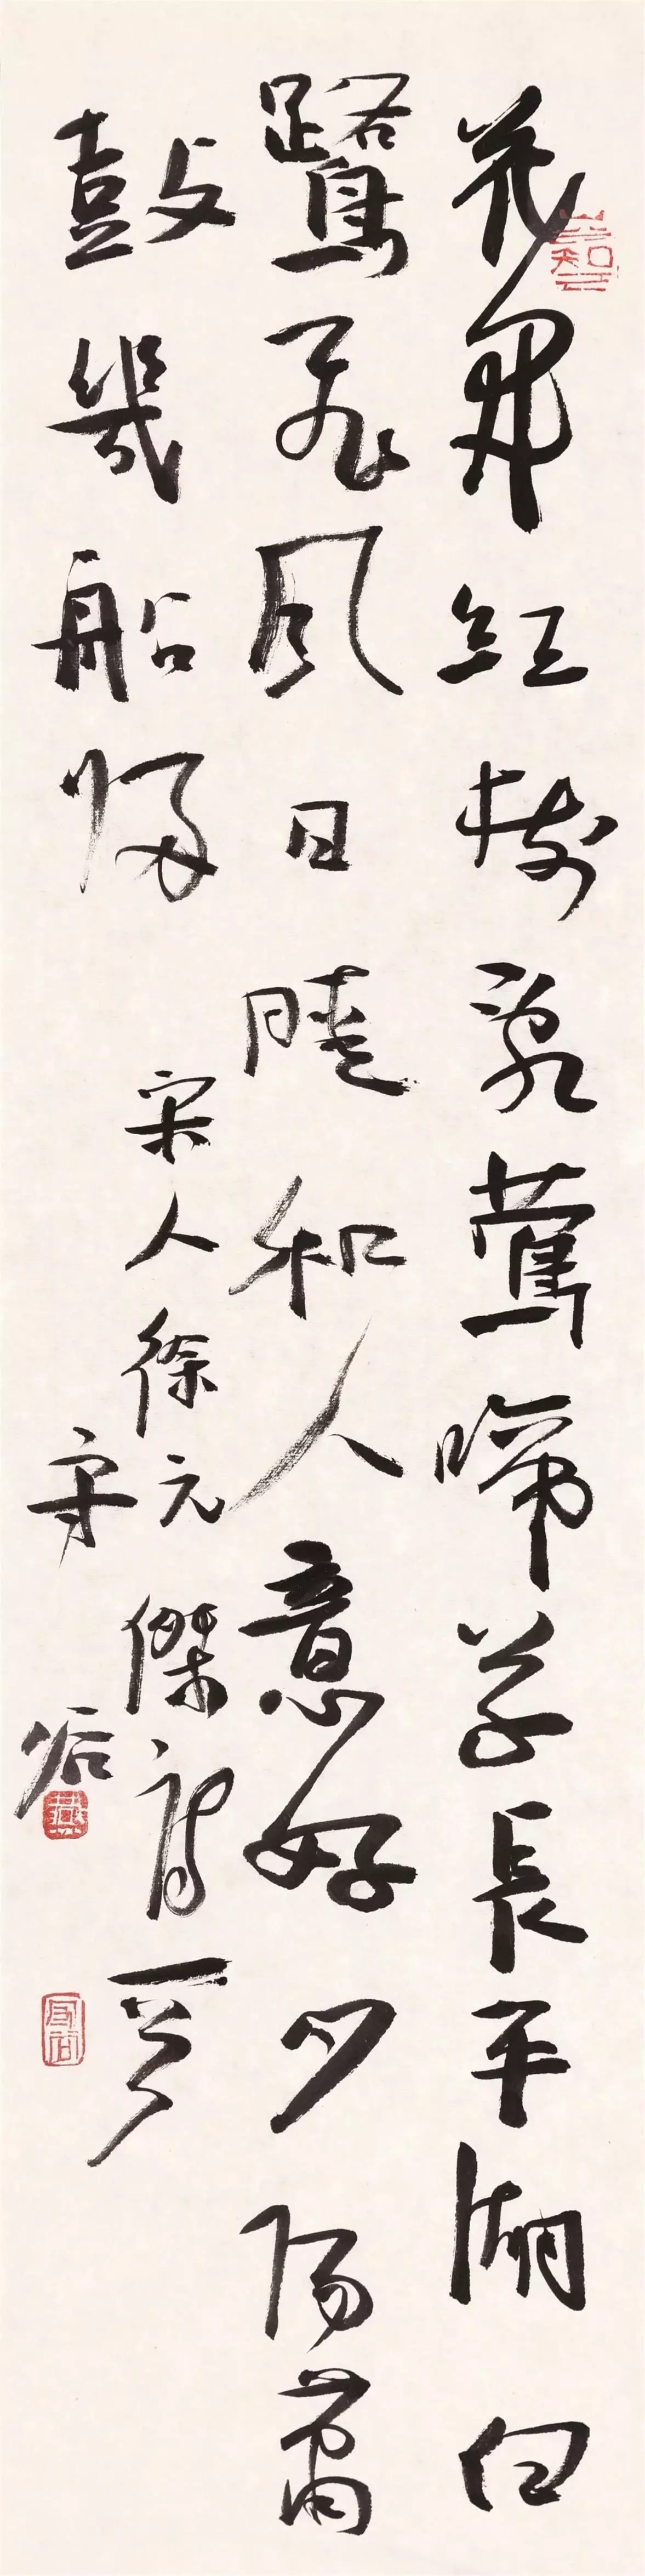 花開紅樹亂鶯啼草長平湖白
鷺飛風日晴和人意好夕陽蕭
鼓幾船歸
宋人徐元傑詩一首
守拓